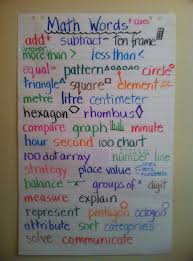 Math Words + cues
add + subtract - Ten frame
greater
more than > less than <
equal = pattern circle
triangle square element
metre litre centimeter
hexagon rhombus
compare graph minute
hour second 100 chart
100 dot array number line
strategy place value ones tens hundreds
balance groups of x digit
measure explain
represent pentagon octagon
attribute sort categories
solve communicate